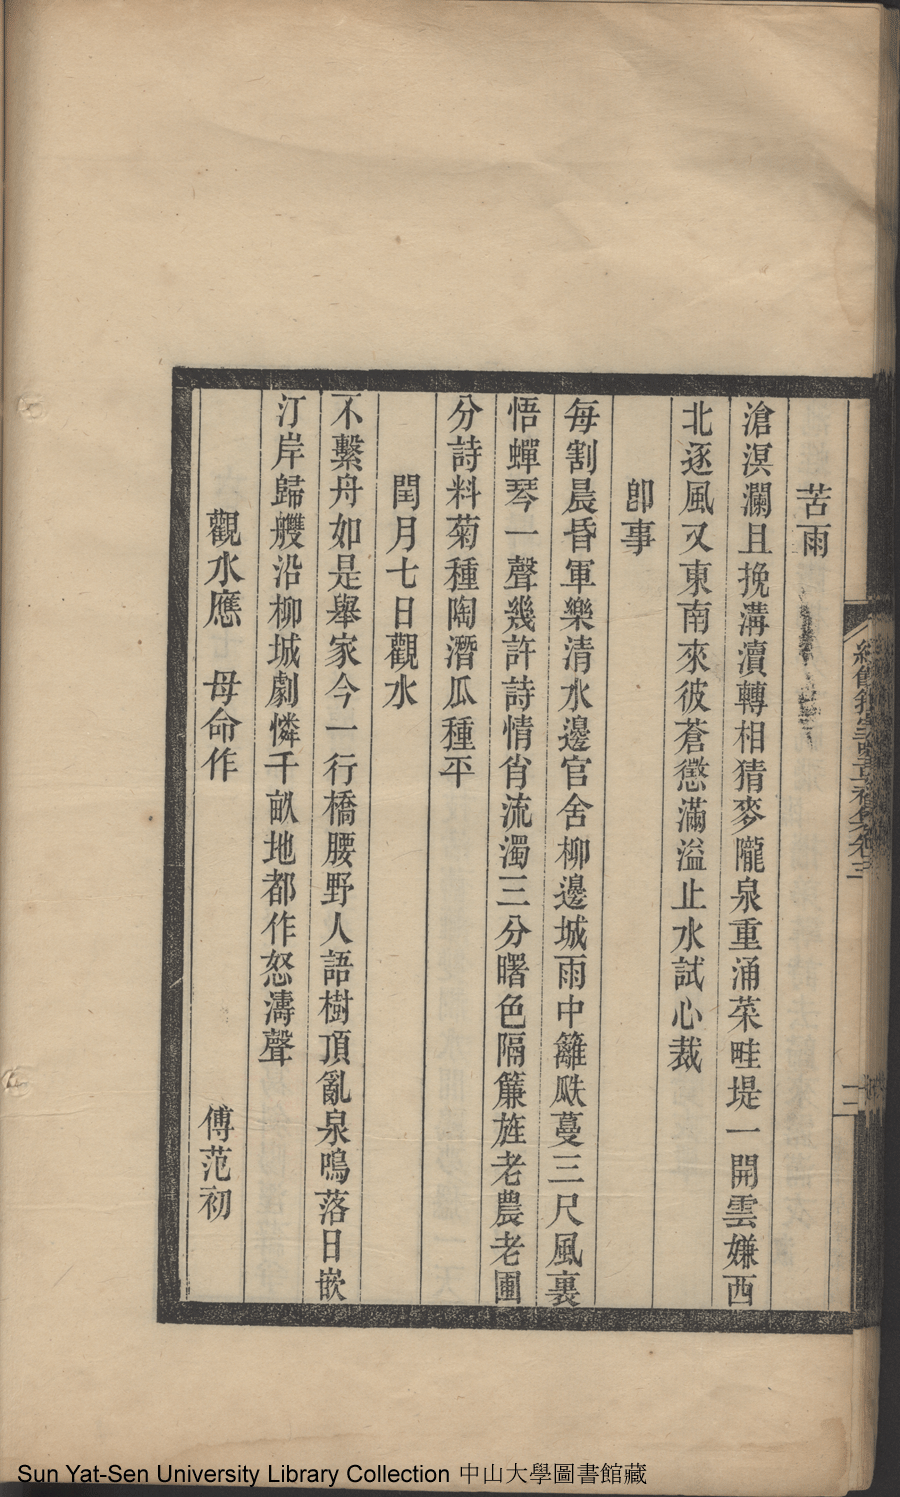 苦雨
滄溟瀾且挽溝瀆轉相猜麥隴泉重涌菜畦堤一開雲嫌西
北逐風又東南來彼蒼懲滿溢止水試心裁
卽事
每割晨昏軍樂清水邊官舍柳邊城雨中籬瓞蔓三尺風裏
悟蟬琴一聲幾許詩情肖流濁三分曙色隔簾旌老農老圃
分詩料菊種陶潛瓜種平
閏月七日觀水
不繫舟如是舉家今一行橋腰野人語樹頂亂泉鳴落日嵌
汀岸歸艭沿柳城劇憐千畝地都作怒濤聲
觀水應 母命作 傅范初
二
Sun Yat-Sen University Library Collection 中山大學圖書館藏